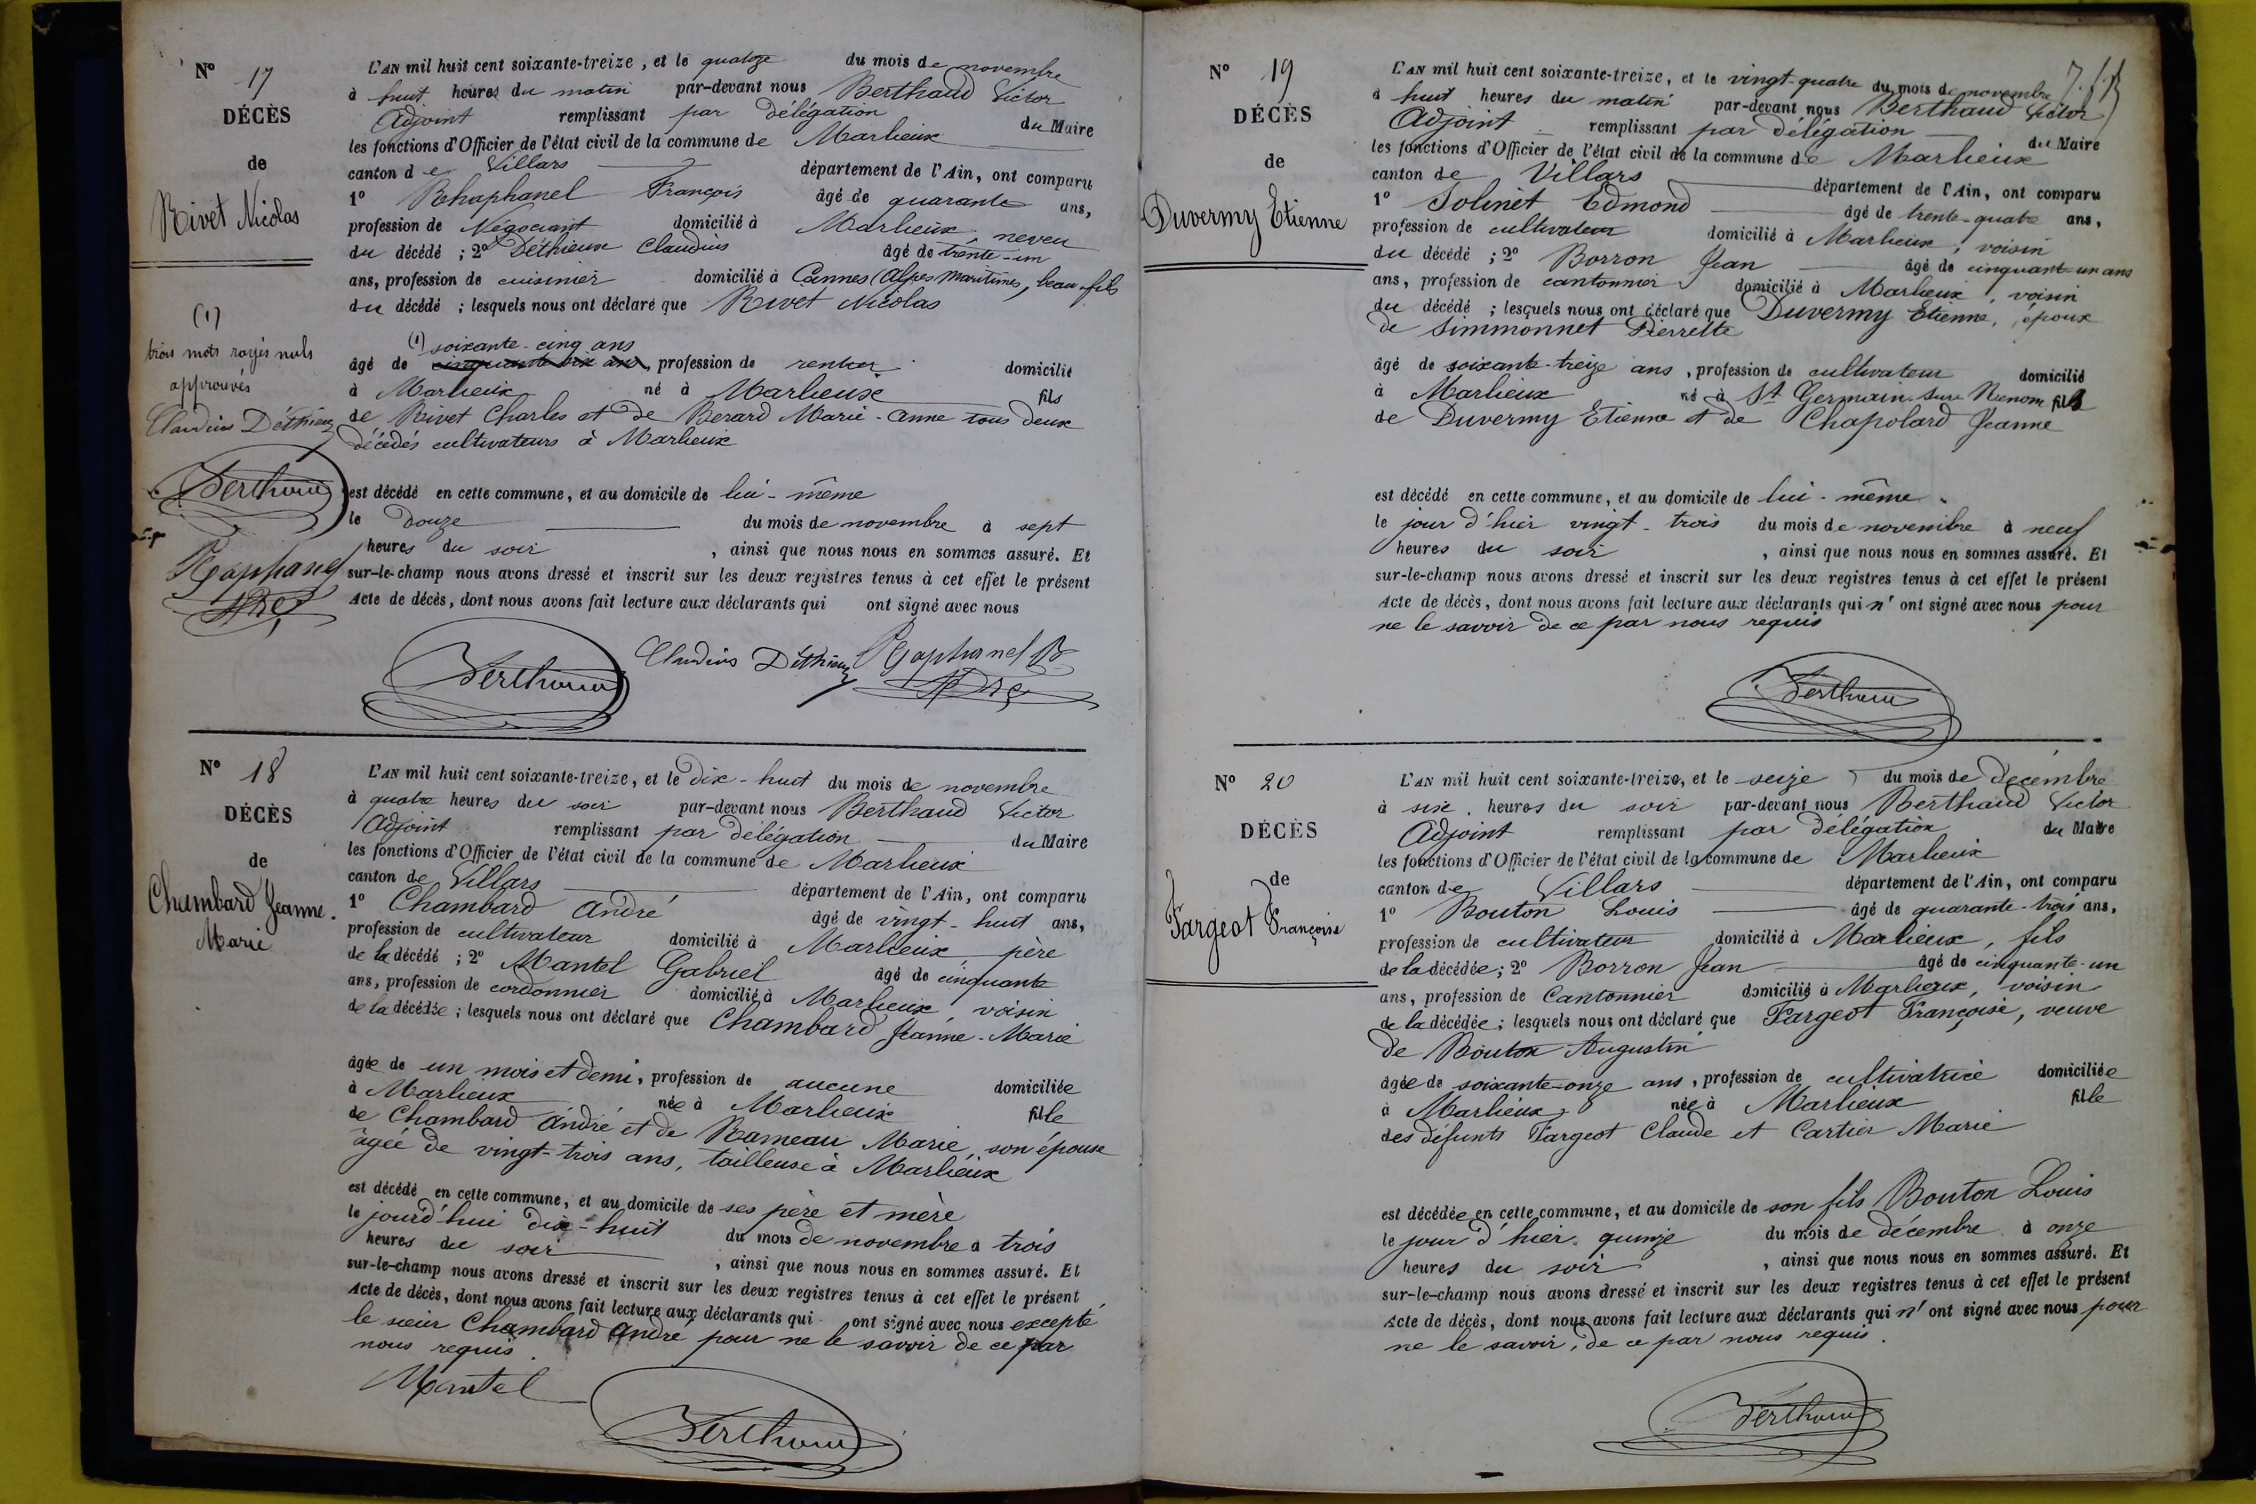 N° 17
DÉCÈS
de
Rivet Nicolas
(1)
trois mots rayés nuls
approuvés
Claudius Déthieux
Berthaud
Raphanel
L'AN mil huit cent soixante-treize, et le quatorze du mois de novembre
à huit heures du matin par-devant nous Berthaud Victor
Adjoint remplissant par délégation du Maire
les fonctions d'Officier de l'état civil de la commune de Marlieux
canton de Villars département de l'Ain, ont comparu
1° Rhaphanel François âgé de quarante ans,
profession de Négociant domicilié à Marlieux neveu
du décédé ; 2° Déthieux Claudius âgé de trente-un
ans, profession de cuisinier domicilié à Cannes (Alpes Maritimes, beau-fils
du décédé ; lesquels nous ont déclaré que Rivet Nicolas
(1) soixante-cinq ans
âgé de cinquante six ans, profession de rentier domicilié
à Marlieux né à Marlieux fils
de Rivet Charles et de Berard Marie-Anne tous deux
décédés cultivateurs à Marlieux
est décédé en cette commune, et au domicile de lui-même
le douze du mois de novembre à sept
heures du soir, ainsi que nous nous en sommes assuré. Et
sur-le-champ nous avons dressé et inscrit sur les deux registres tenus à cet effet le présent
Acte de décès, dont nous avons fait lecture aux déclarants qui ont signé avec nous
Berthaud Claudius Déthieux Raphanel
N° 18
DÉCÈS
de
Chambard Jeanne
Marie
L'AN mil huit cent soixante-treize, et le dix-huit du mois de novembre
à quatre heures du soir par-devant nous Berthaud Victor
Adjoint remplissant par délégation du Maire
les fonctions d'Officier de l'état civil de la commune de Marlieux
canton de Villars département de l'Ain, ont comparu
1° Chambard André âgé de vingt-huit ans,
profession de cultivateur domicilié à Marlieux, père
de la décédé ; 2° Mantel Gabriel âgé de cinquante
ans, profession de cordonnier domicilié à Marlieux, voisin
de la décédée ; lesquels nous ont déclaré que Chambard Jeanne-Marie
âgée de un mois et demi, profession de aucune domiciliée
à Marlieux née à Marlieux fille
de Chambard André et de Rameau Marie, son épouse
âgée de vingt-trois ans, tailleuse à Marlieux
est décédé en cette commune, et au domicile de ses père et mère
le jourd'hui dix-huit du mois de novembre à trois
heures du soir, ainsi que nous nous en sommes assuré. Et
sur-le-champ nous avons dressé et inscrit sur les deux registres tenus à cet effet le présent
Acte de décès, dont nous avons fait lecture aux déclarants qui ont signé avec nous excepté
le sieur Chambard André pour ne le savoir de ce par
nous requis.
Mantel
Berthaud
N° 19
DÉCÈS
de
Duvermy Etienne
L'AN mil huit cent soixante-treize, et le vingt-quatre du mois de novembre
à huit heures du matin par-devant nous Berthaud Victor
Adjoint remplissant par délégation du Maire
les fonctions d'Officier de l'état civil de la commune de Marlieux
canton de Villars département de l'Ain, ont comparu
1° Solinet Edmond âgé de trente-quatre ans,
profession de cultivateur domicilié à Marlieux, voisin
du décédé ; 2° Borron Jean âgé de cinquante-un ans
ans, profession de cantonnier domicilié à Marlieux, voisin
du décédé ; lesquels nous ont déclaré que Duvermy Etienne, époux
de Simmonnet Pierrette
âgé de soixante-treize ans, profession de cultivateur domicilié
à Marlieux né à St Germain sur Renom fils
de Duvermy Etienne et de Chapolard Jeanne
est décédé en cette commune, et au domicile de lui-même.
le jour d'hier vingt-trois du mois de novembre à neuf
heures du soir, ainsi que nous nous en sommes assuré. Et
sur-le-champ nous avons dressé et inscrit sur les deux registres tenus à cet effet le présent
Acte de décès, dont nous avons fait lecture aux déclarants qui n'ont signé avec nous pour
ne le savoir de ce par nous requis
Berthaud
N° 20
DÉCÈS
de
Fargeot Françoise
L'AN mil huit cent soixante-treize, et le seize du mois de décembre
à six heures du soir par-devant nous Berthaud Victor
Adjoint remplissant par délégation du Maire
les fonctions d'Officier de l'état civil de la commune de Marlieux
canton de Villars département de l'Ain, ont comparu
1° Bouton Louis âgé de quarante-trois ans,
profession de cultivateur domicilié à Marlieux, fils
de la décédée ; 2° Borron Jean âgé de cinquante-un
ans, profession de Cantonnier domicilié à Marlieux, voisin
de la décédée ; lesquels nous ont déclaré que Fargeot Françoise, veuve
de Bouton Augustin
âgée de soixante-onze ans, profession de cultivatrice domiciliée
à Marlieux née à Marlieux fille
des défunts Fargeot Claude et Cartier Marie
est décédée en cette commune, et au domicile de son fils Bouton Louis
le jour d'hier quinze du mois de décembre à onze
heures du soir, ainsi que nous nous en sommes assuré. Et
sur-le-champ nous avons dressé et inscrit sur les deux registres tenus à cet effet le présent
Acte de décès, dont nous avons fait lecture aux déclarants qui n'ont signé avec nous pour
ne le savoir, de ce par nous requis.
Berthaud